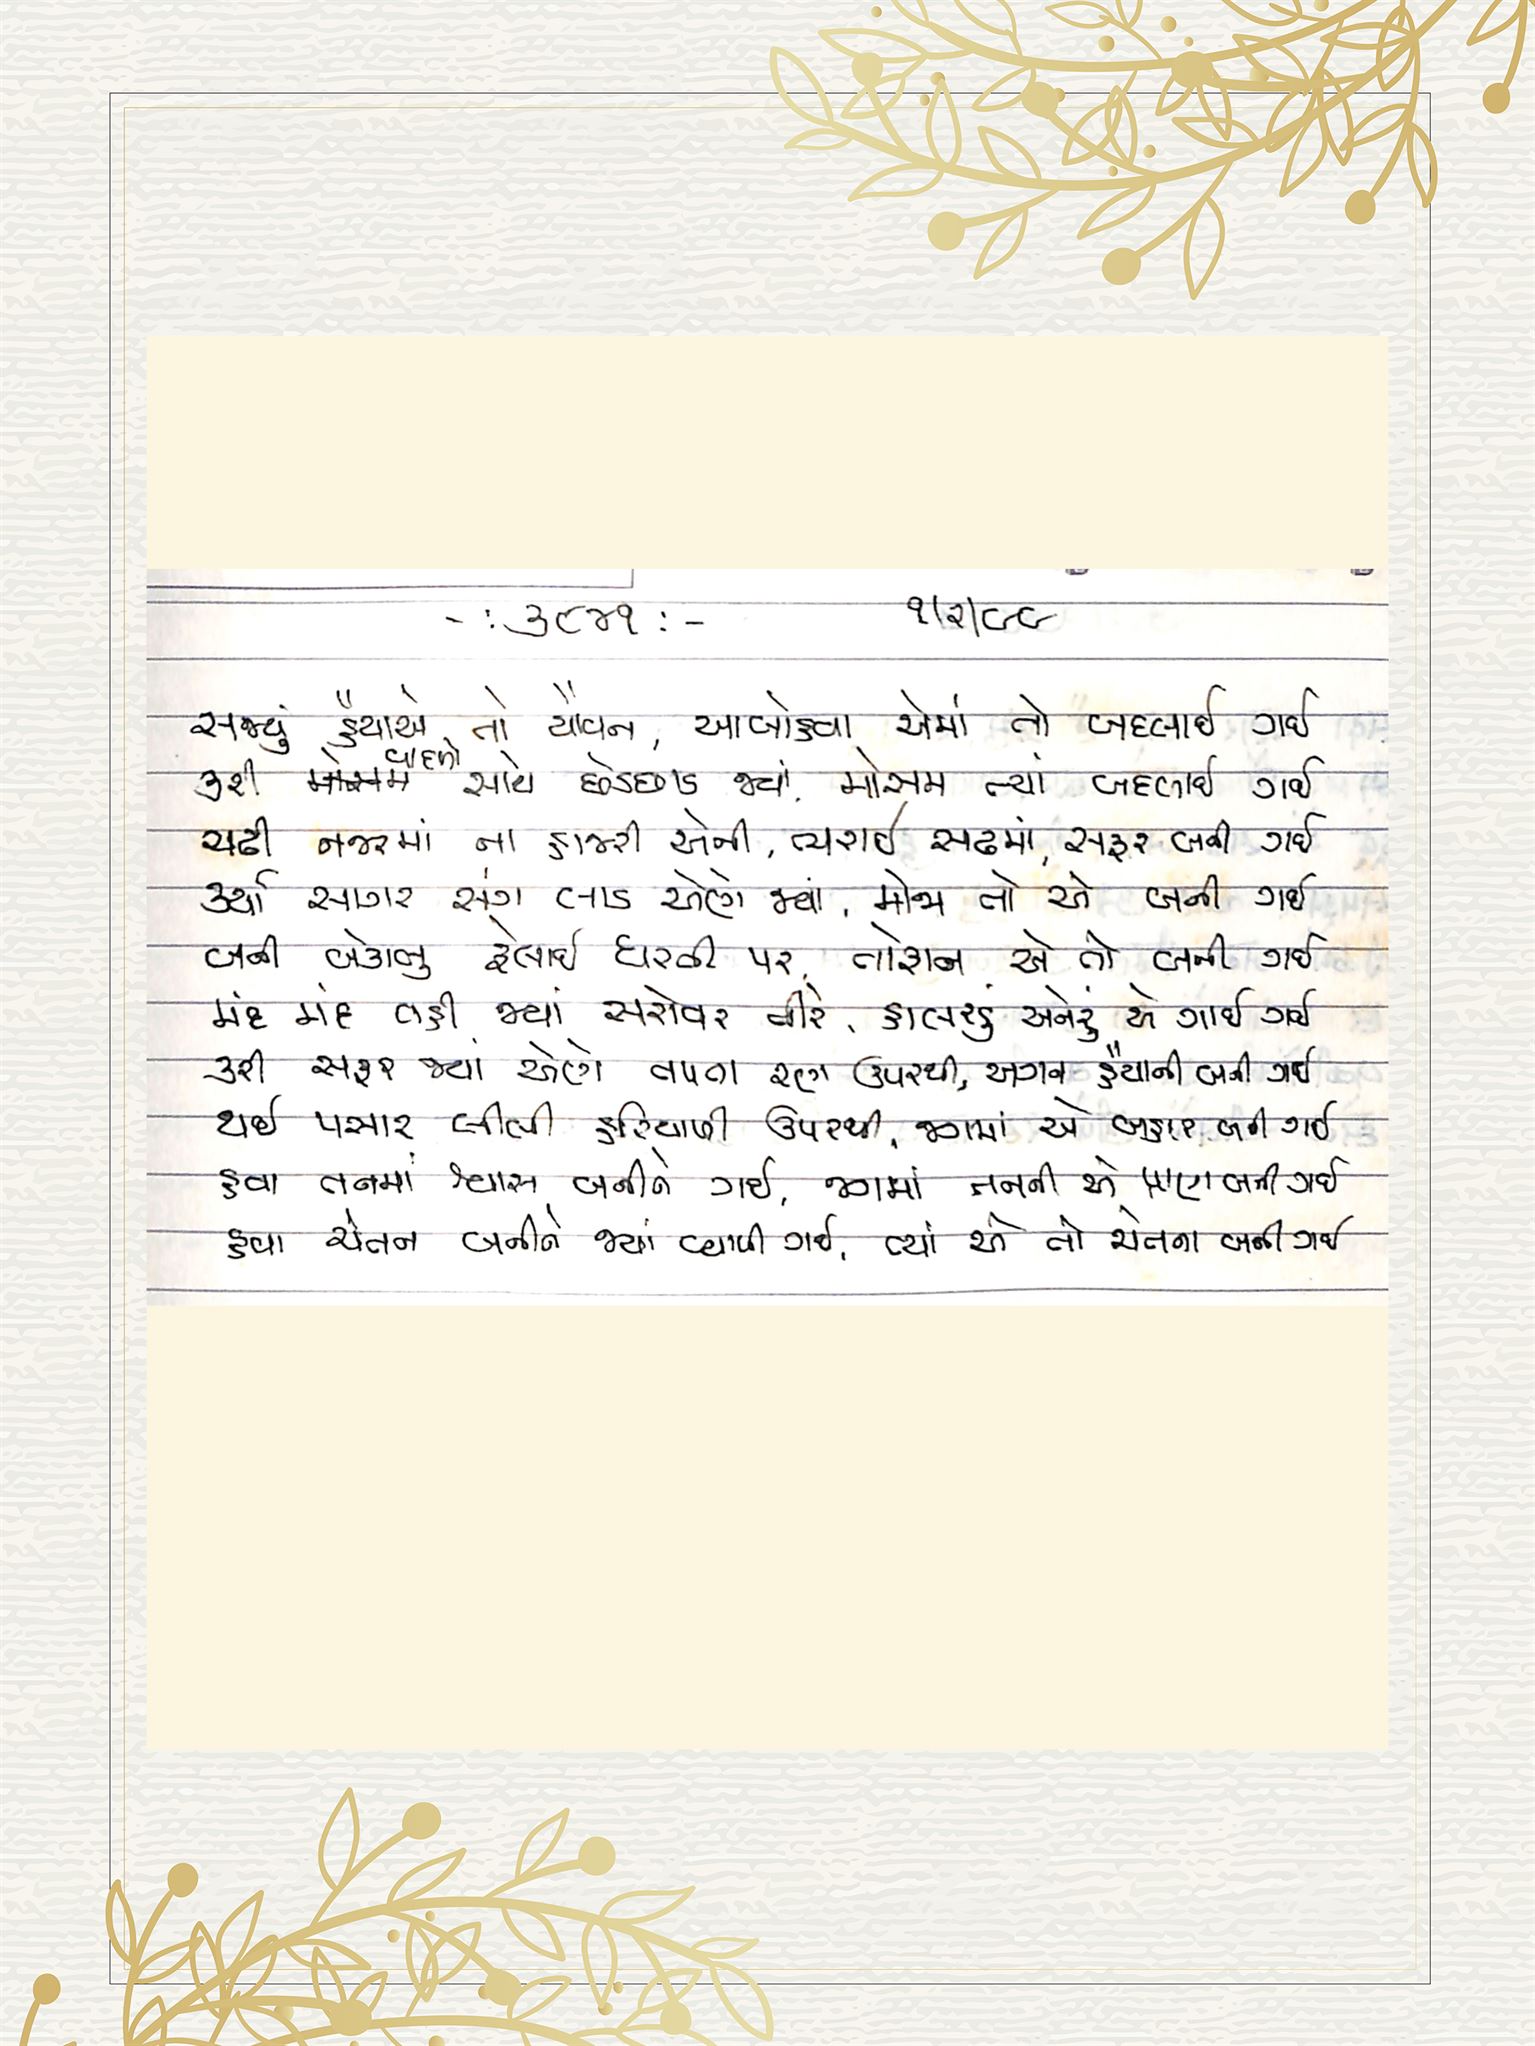 -: ૩૯૪૧ :- ૧/૨/૯૯
સજ્યું હૈયાએ તો યૌવન, આબોહવા એમાં તો બદલાઈ ગઈ
કરી વાદળો સાથે છેડછાડ જ્યાં, મોસમ ત્યાં બદલાઈ ગઈ
ચઢી નજરમાં ના હાજરી એની, ભરાઈ સઢમાં, સફર બની ગઈ
કર્યા સાગર સંગ લાડ એણે જ્યાં, મોજ તો એ બની ગઈ
બની બેકાબુ ફેલાઈ ધરતી પર, તોફાન એ તો બની ગઈ
મંદ મંદ વહી જ્યાં સરોવર તીરે, હાલરડું અનેરું એ ગાઈ ગઈ
કરી સફર જ્યાં એણે તપતા રણ ઉપરથી, અગન હૈયાની બની ગઈ
થઈ પસાર લીલી હરિયાળી ઉપરથી, જગમાં એ બહાર બની ગઈ
હવા તનમાં શ્વાસ બનીને ગઈ, જગમાં તનની એ પ્રાણ બની ગઈ
હવા ચેતન બનીને જ્યાં વ્યાપી ગઈ, ત્યાં એ તો ચેતના બની ગઈ